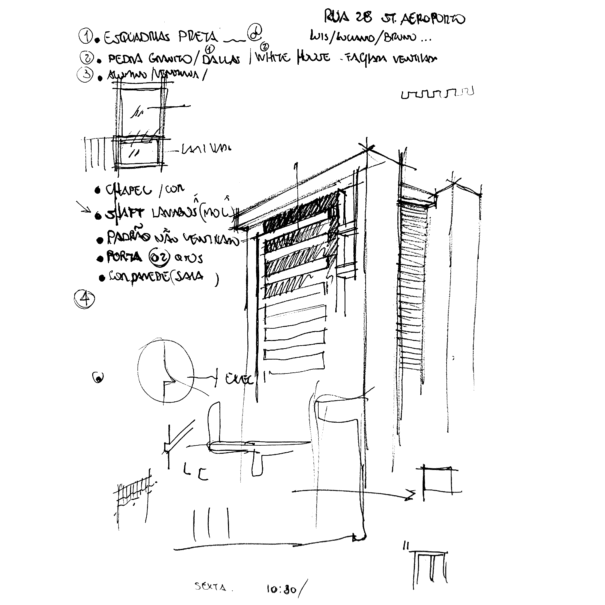 RUA 28 ST. AEROPORTO
LUIS/LUCIANO/BRUNO...
① • ESQUADRIAS PRETA
② • PEDRA GRANITO/DALLAS/WHITE HOUSE - FAÇHADA VENTILADA
③ •
• CHAPEC /COR
• SHAFT LAVABOS
• PADRÃO NÃO VENTILADO
• PORTA 02 QTOS
• COR PAREDE (SALA )
④
EXEC
LC
SEXTA. 10:30/